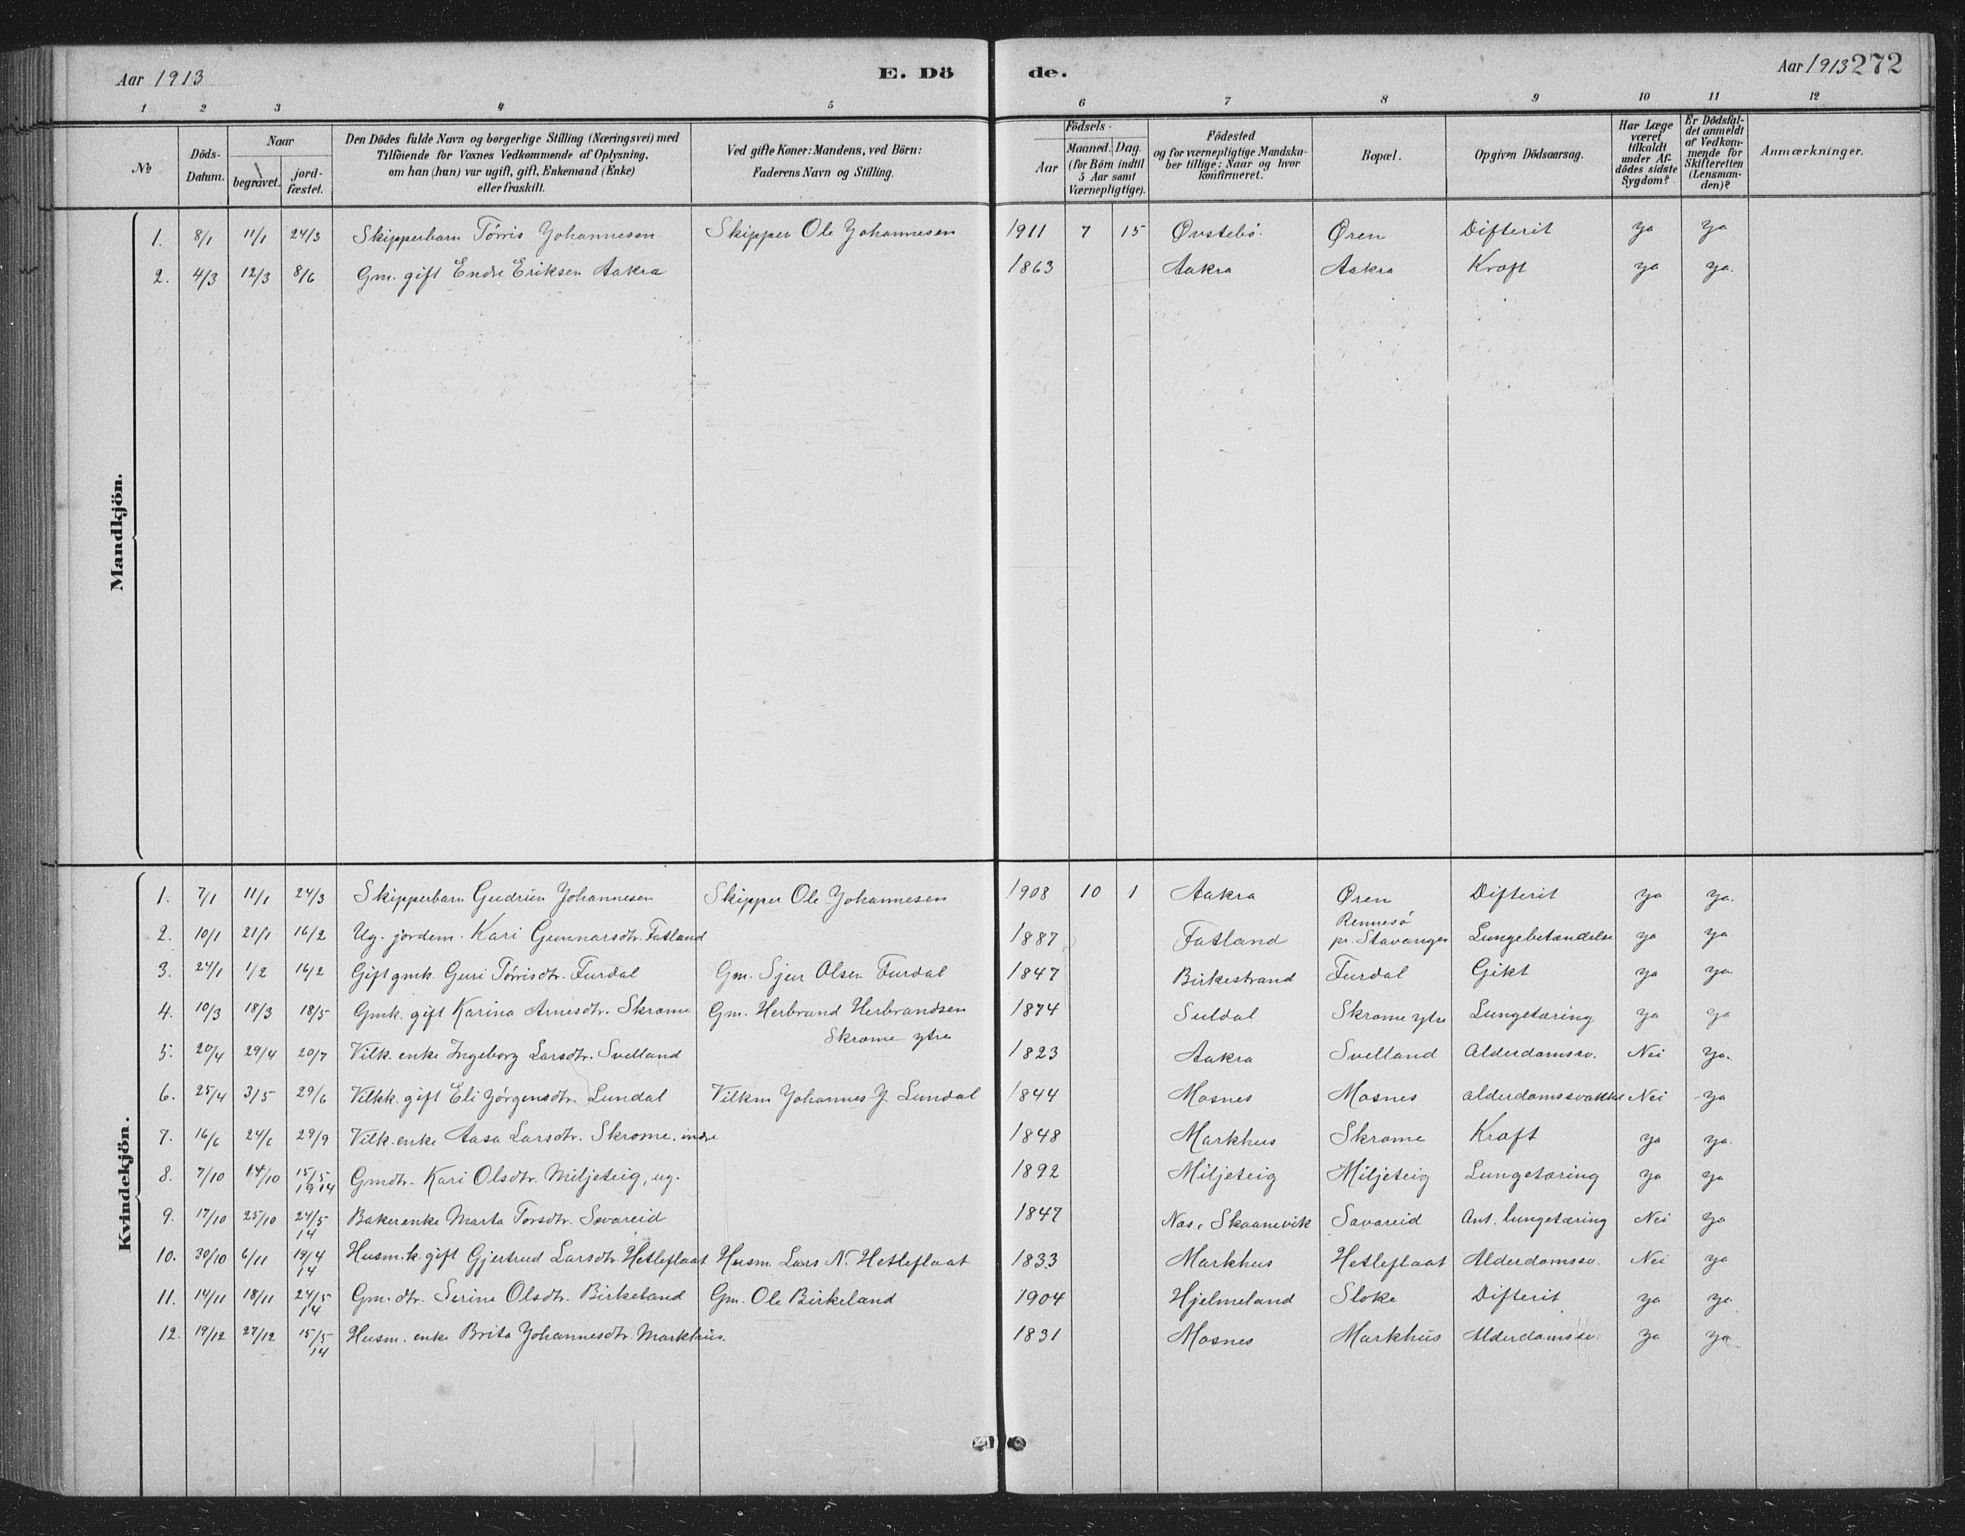 Aar 1913 E. Dö de. Aar 1913 272
1 2 3 4 5 6 7 8 9 10 11 12
No
Döds-Datum.
Naar
begravet.
jord-fæstet.
Den Dödes fulde Navn og borgerlige Stilling (Næringsvei) med
Tilföiende for Voxnes Vedkommende af Oplysning,
om han (hun) var ugift, gift, Enkemand (Enke)
eller fraskilt.
Ved gifte Koner: Mandens, ved Börn:
Faderens Navn og Stilling.
Födsels-
Aar
Maaned. Dag.
(for Börn indtil
5 Aar samt
Værnepligtige).
Födested
og for værnepligtige Mandska-
ber tillige: Naar og hvor
konfirmeret.
Bopæl.
Opgiven Dödsaarsag.
Har Læge
været
tilkaldt
under Af-
dödes sidste
Sygdom?
Er Dödsfal-
det anmeldt
af Vedkom-
mende for
Skifteretten
(Lensman-
den)?
Anmærkninger.
Mandkjön.
1. 8/1 11/1 24/3 Skipperbarn Tørris Johannesen Skipper Ole Johannesen 1911 7 15 Øvstebö. Ören Difterit ja ja
2. 4/3 12/3 8/6 Gm. gift Endre Eriksen Aakra 1863 Aakra Aakra Kræft ja ja.
Kvindekjön.
1. 7/1 11/1 24/3 Skipperbarn Gudrun Johannesen Skipper Ole Johannesen 1908 10 1 Aakra Ören Difterit ja ja.
2. 10/1 21/1 16/2 Ug. jordem. Kari Gunnarsdtr. Fatland 1887 Fatland Rennesö pr. Stavanger Lungebetændelse ja ja.
3. 24/1 1/2 16/2 Gift gmk. Guri Tørrisdtr. Furdal Gm. Sjur Olsen Furdal 1847 Birkestrand Furdal Gikt ja ja
4. 10/3 18/3 18/5 Gmk. gift Karina Arnesdtr. Skrome Gm. Herbrand Herbrandsen 1874 Suldal Skrome ytre Lungetæring ja ja
Skrome ytre
5. 20/4 29/4 20/7 Vilk. enke Ingeborg Larsdtr. Svelland 1823 Aakra Svelland Alderdomssv. Nei ja.
6. 25/4 3/5 29/6 Vilkk. gift Eli Jørgensdtr. Lundal Vilkm Johannes J. Lundal 1844 Mosnes Mosnes alderdomssvakke Nei ja
7. 16/6 24/6 29/9 Vilk. enke Aasa Larsdtr. Skrome, indre 1848 Markhus Skrome Kræft ja ja.
8. 7/10 14/10 15/5 1914 Gmdtr. Kari Olsdtr. Miljeteig, ug. 1892 Miljeteig Miljeteig Lungetæring ja ja
9. 17/10 25/10 24/5 14 Bakerenke Marta Torsdtr. Sævareid 1847 Næs, Skaanevik Sævareid Ant. lungetæring Nei ja
10. 30/10 6/11 19/4 14 Husm.k. gift Gjertrud Larsdtr. Hetleflaat Husm. Lars N. Hetleflaat 1833 Markhus Hetleflaat Alderdomssv. Nei ja
11. 14/11 18/11 24/5 14 Gm. dtr. Serine Olsdtr. Birkeland Gm. Ole Birkeland 1904 Hjelmeland Sloke Difterit ja ja.
12. 19/12 27/12 15/5 14 Husm. enke Brita Johannesdtr. Markhus. 1831 Mosnes Markhus Alderdomssv. ja ja